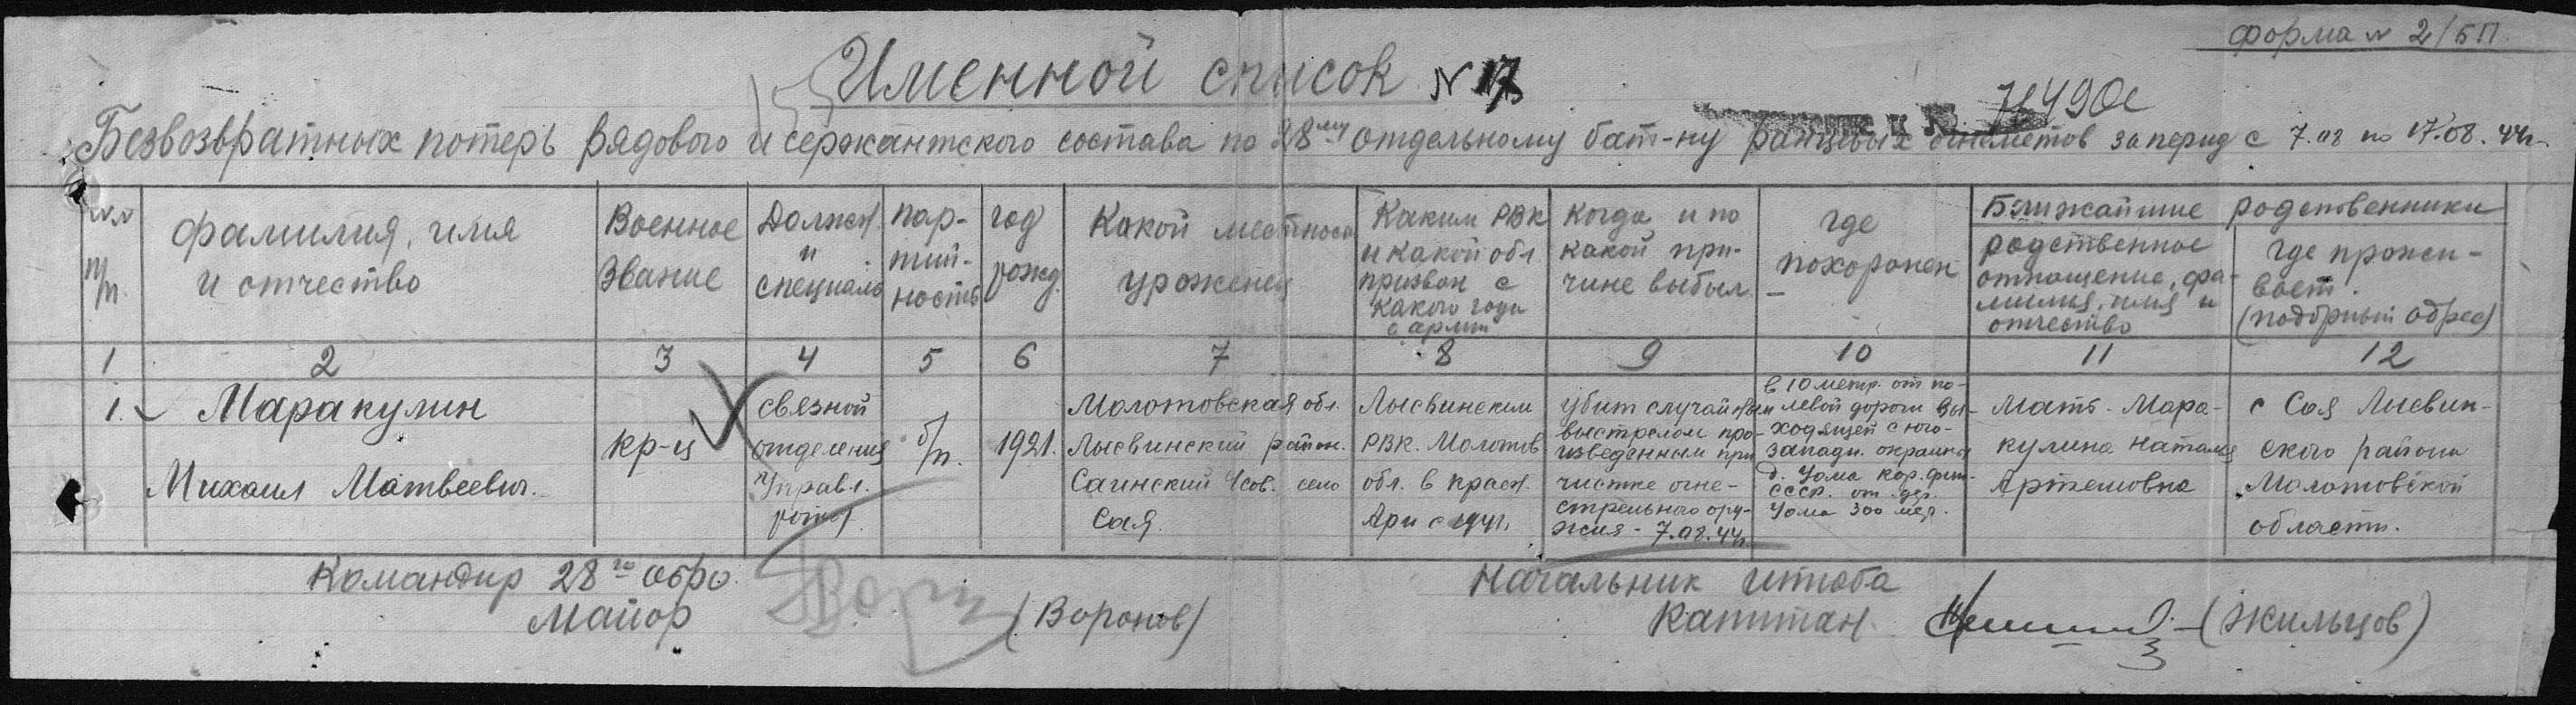 форма № 2/БП.
Именной список № 17
Безвозвратных потерь рядового и сержантского состава по 28му отдельному бат-ну ранцевых огнеметов за период с 7.08 по 17.08.44г.
№№ п/п.
фамилия, имя
и отчество
Военное
звание
Должн.
и
специаль
пар-
тий-
ность
год
рожд.
Какой местност
уроженец
Каким РВК
и какой обл
призван с
какого года
в армии
когда и по
какой при-
чине выбыл
где
похоронен
Ближайшие родственники
родственное
отношение, фа-
милия, имя и
отчество
где прожи-
вает.
(подобрный адрес)
1 2 3 4 5 6 7 8 9 10 11 12
1.
Маракулин
Михаил Матвеевич.
кр-ц
связной
отделения
управл.
роты
б/п.
1921.
Молотовская обл.
Лысвинский район.
Саинский с/сов. село
Сая.
Лысвинским
РВК. Молотов
обл. в красн.
Арм с
убит случайным
выстрелом про-
изведенным при
чистке огне-
стрельного ору-
жия - 7.08.44г.
в 10 метр. от по-
левой дороги вы-
ходящей с юго-
западн. окраины
д. Уома Кар.фин.
СССР. от дер.
Уома 300 мет.
Мать - Мара-
кулина Наталья
Артемовна
с Сая Лысвин-
ского района
Молотовской
области.
Командир 28го обро
Майор
(Воронов)
Начальник штаба
Капитан
(Жильцов)